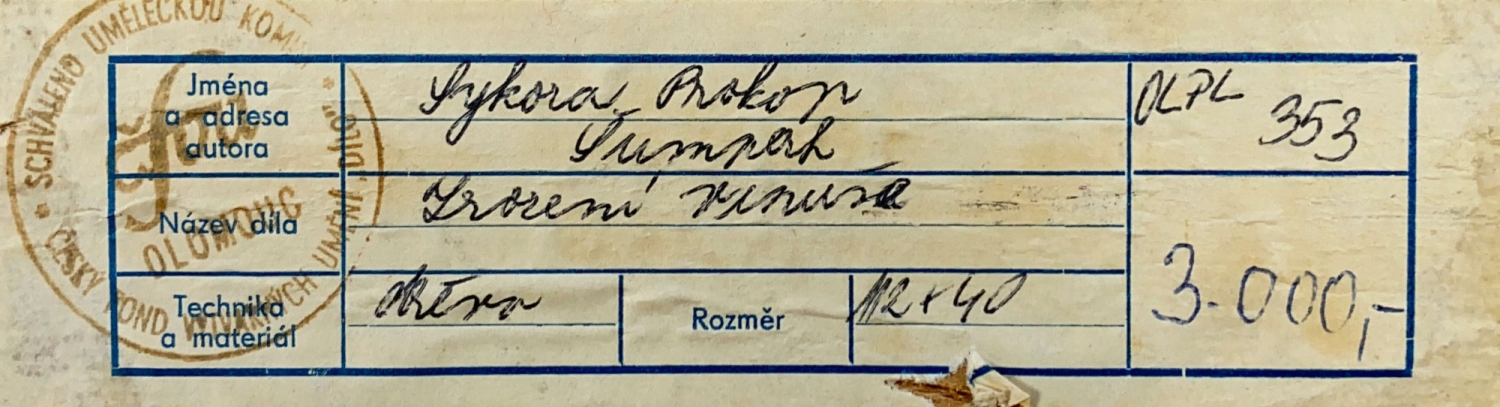 SCHVÁLENO UMĚLECKOU KOMISÍ
* ČESKÝ FOND VÝTVARNÝCH UMĚNÍ „DÍLO" *
OLOMOUC
Jména
a adresa
autora
Sykora Prokop
Šumperk
OLPL 353
Název díla
Zrození venuše
Technika
a materiál
dřevo
Rozměr
112x40
3.000,-